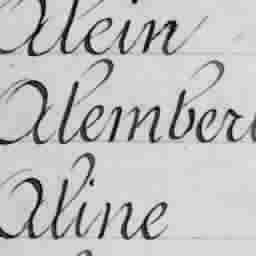 Alein
Alember
Aline